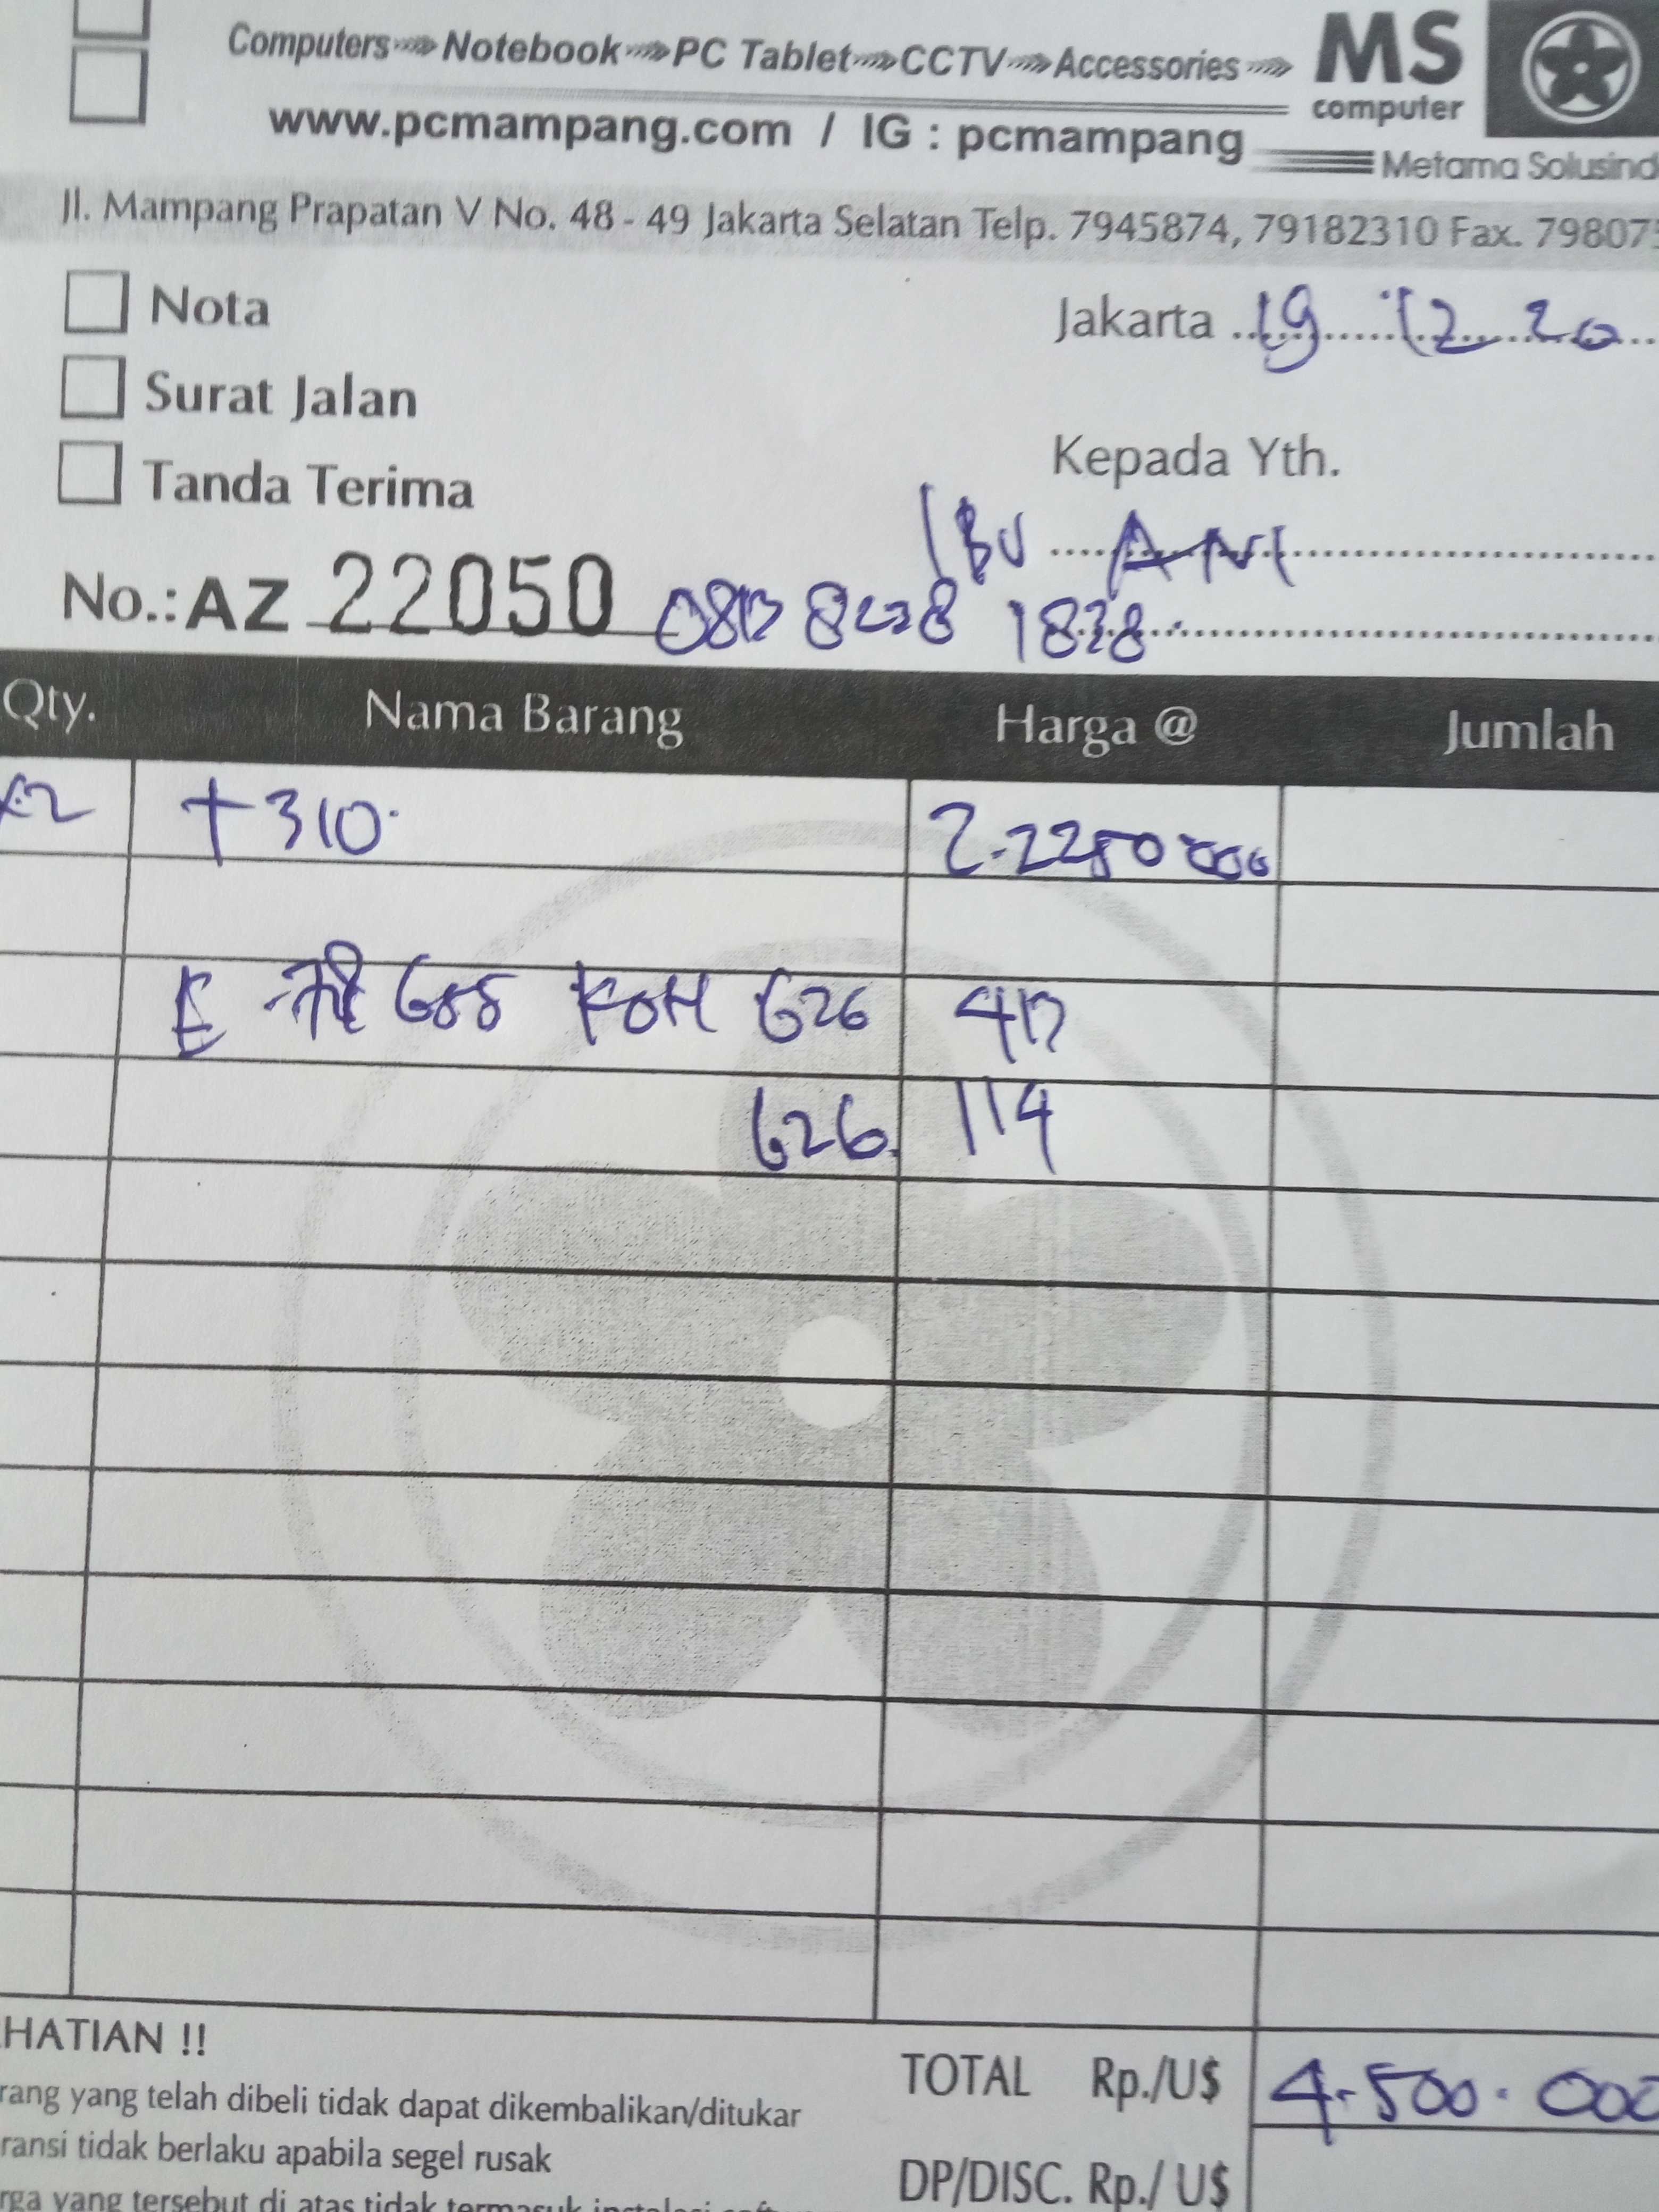 Computers Notebook PC Tablet CCTV Accessories
MS
computer
www.pcmampang.com / IG : pcmampang
Metama Solusind
Jl. Mampang Prapatan V No. 48 - 49 Jakarta Selatan Telp. 7945874, 79182310 Fax. 79807
Nota
Jakarta 19 12 20
Surat Jalan
Kepada Yth.
Tanda Terima
IBU ANI
No.: AZ 22050
1828
Qty. Nama Barang Harga @ Jumlah
x2 310. 2.2250 000
E 626
626 114
HATIAN !!
TOTAL Rp./U$ 4.500.000
rang yang telah dibeli tidak dapat dikembalikan/ditukar
ransi tidak berlaku apabila segel rusak
DP/DISC. Rp./ U$
rga yang tersebut di atas tidak termasuk instalasi